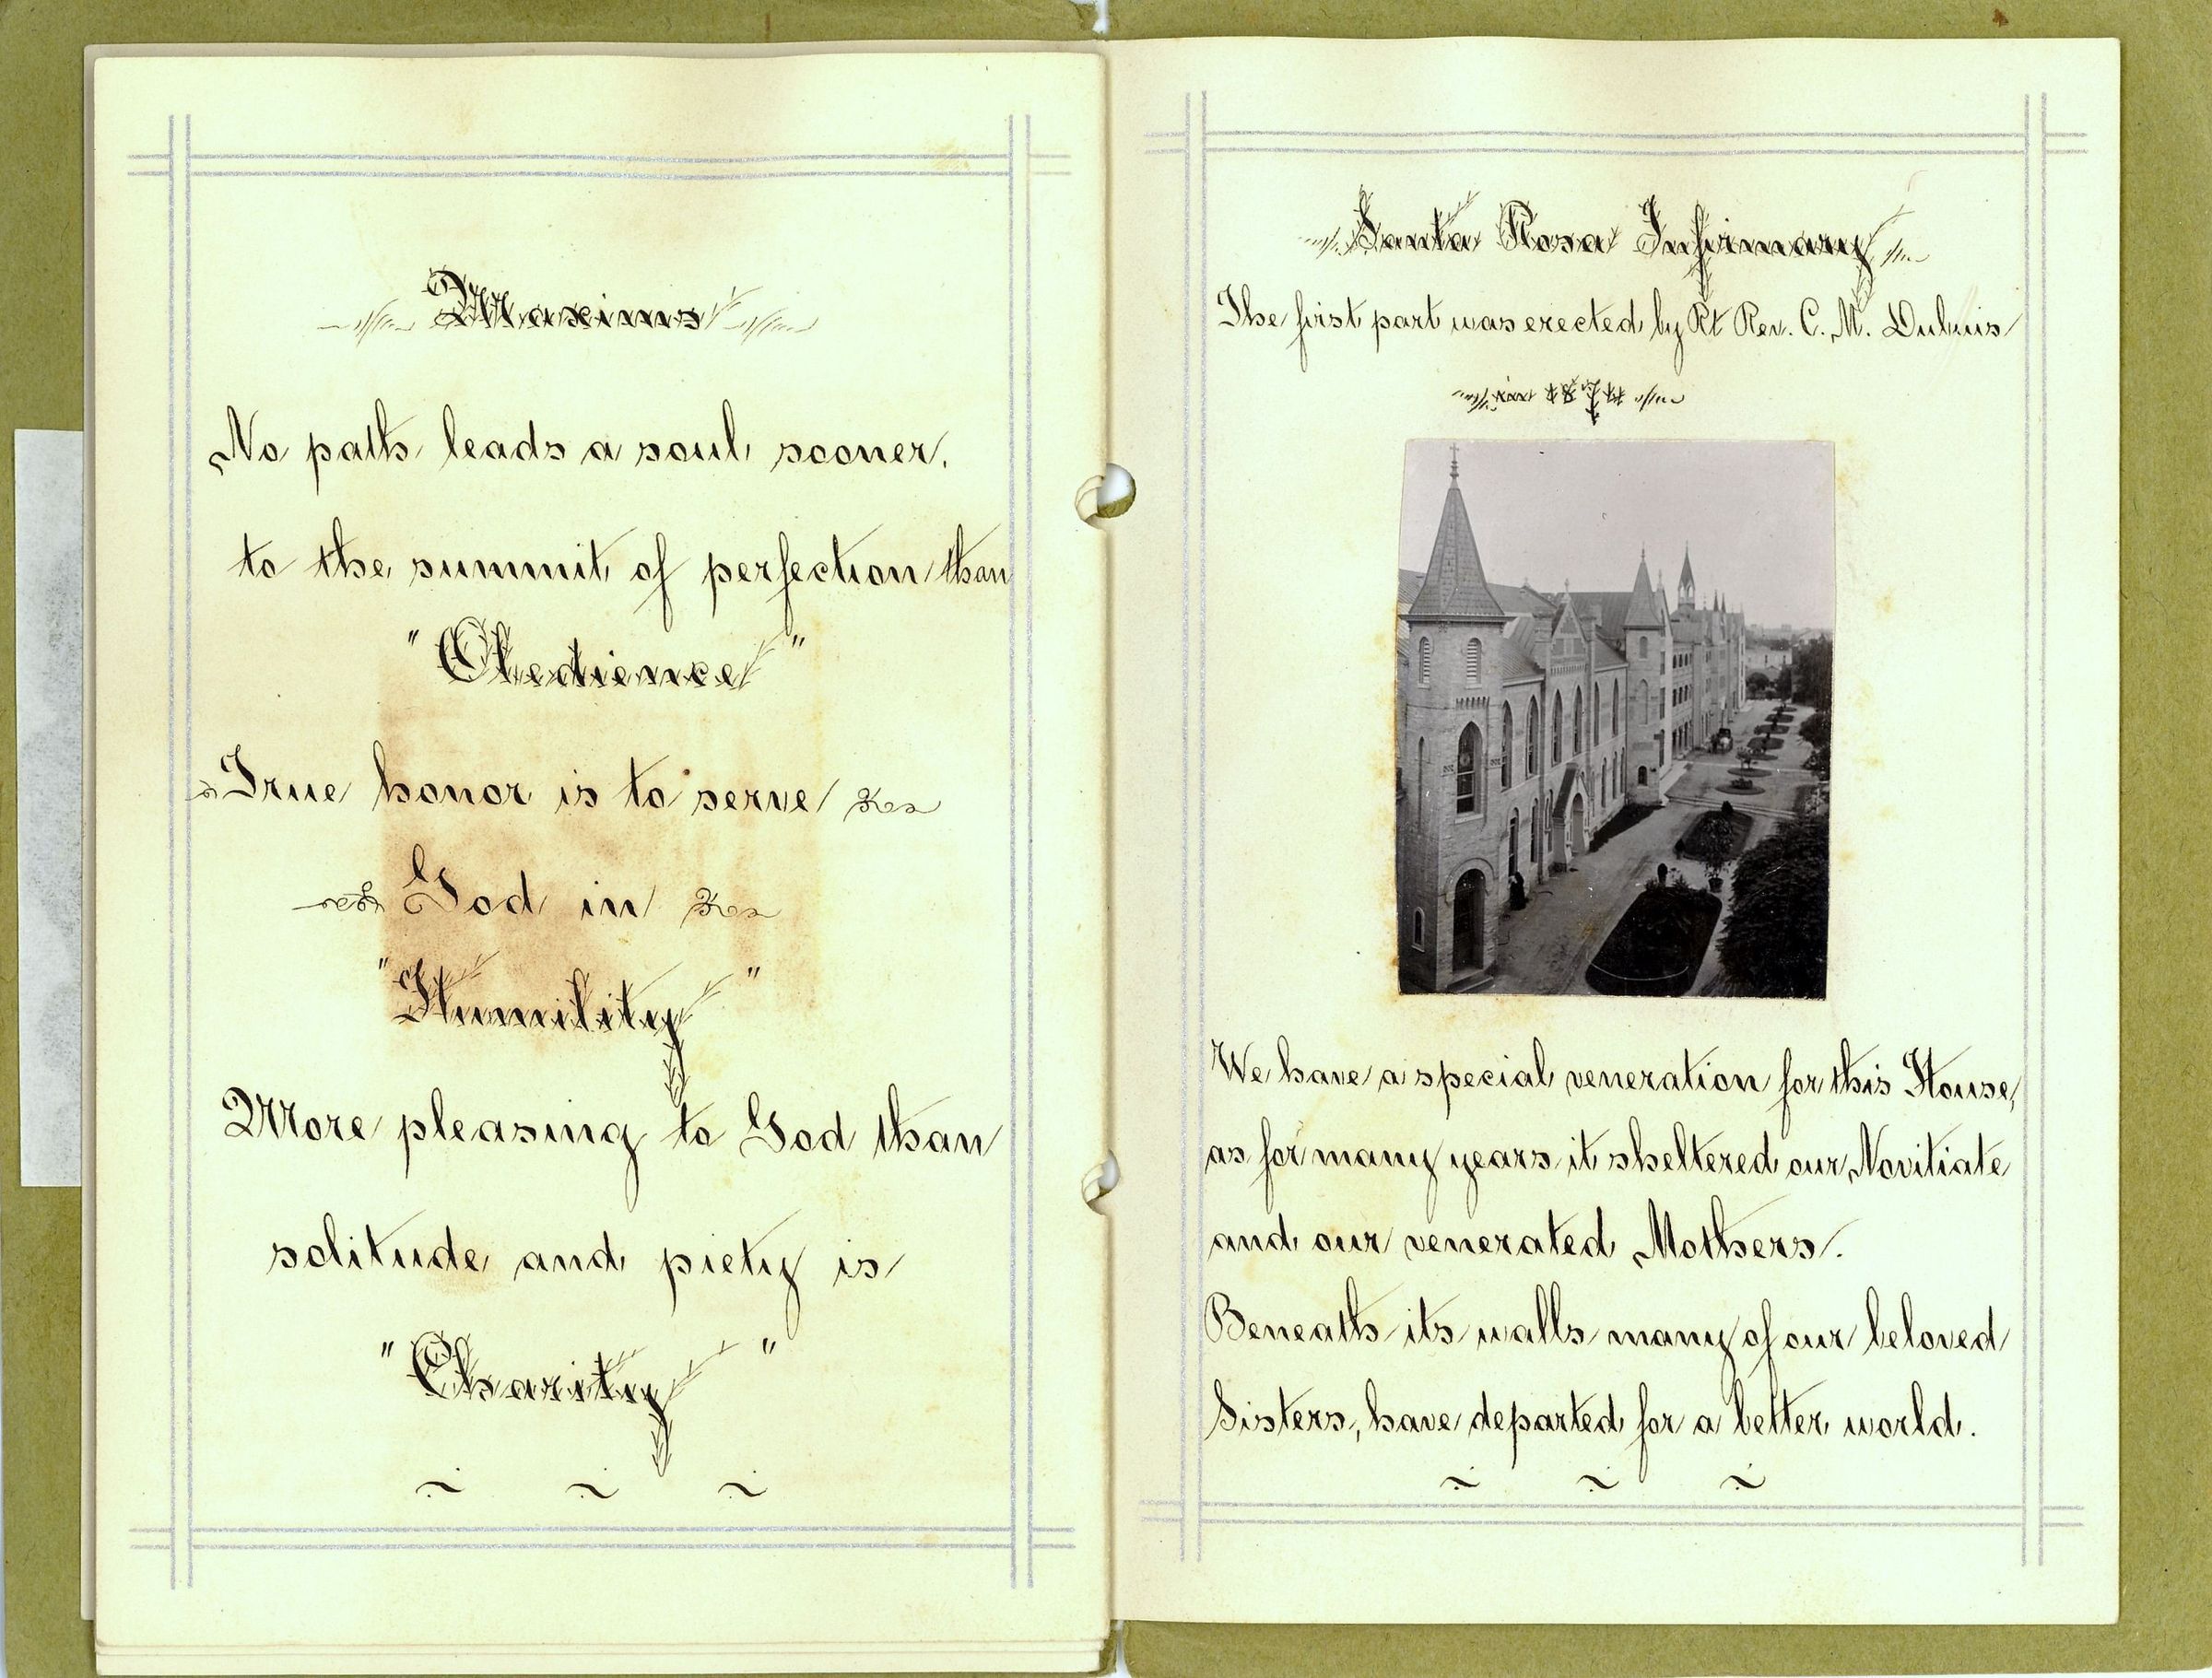 Maxims
No path leads a soul sooner.
to the summit of perfection than
"Obedience"
True honor is to serve
God in
"Humility"
More pleasing to God than
solitude and piety is
"Charity"
Santa Rosa Infirmary
The first part was erected by Rt Rev. C. M. Dubuis
We have a special veneration for this House,
as for many years it sheltered our Novitiate
and our venerated Mothers.
Beneath its walls many of our beloved
Sisters, have departed for a better world.